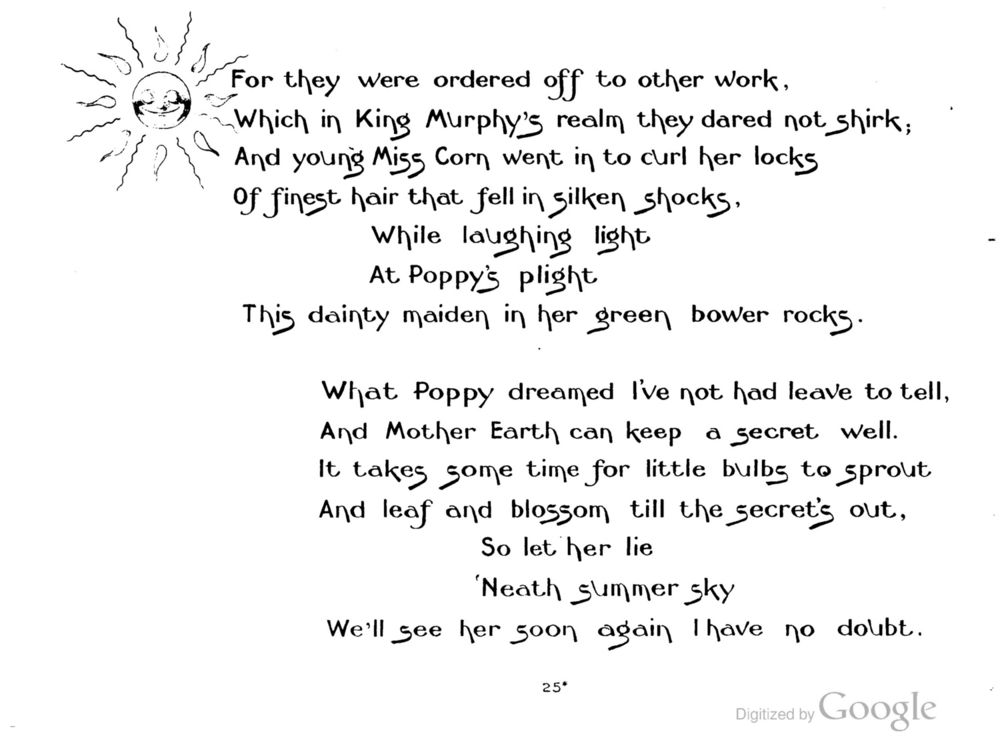 For they were ordered off to other work,
Which in King Murphy's realm they dared not shirk;
And young Miss Corn went in to curl her locks
Of finest hair that fell in silken shocks,
While laughing light
At Poppy's plight
This dainty maiden in her green bower rocks.
What Poppy dreamed I've not had leave to tell,
And Mother Earth can keep a secret well.
It takes some time for little bulbs to sprout
And leaf and blossom till the secret's out,
So let her lie
'Neath summer sky
We'll see her soon again I have no doubt.
25*
Digitized by Google